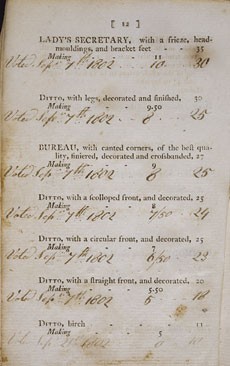 [ 12 ]
LADY'S SECRETARY, with a frieze, head-
mouldings, and bracket feet - - 35
Making - - 11
Voted Sepr. 7th 1802 - - 10 30
DITTO, with legs, decorated and finished, 30
Making - - 9.50
Voted Sepr. 7th 1802 - - 8 25
BUREAU, with canted corners, of the best qua-
lity, finiered, decorated and crossbanded, 27
Making - - 9
Voted Sepr. 7th 1802 8 25
DITTO, with a scolloped front, and decorated, 25
Making - - 8
Voted Sepr. 7th 1802 7/50 24
DITTO, with a circular front, and decorated, 25
Making - - 7
Voted Sepr. 7th 1802 6/50 23
DITTO, with a straight front, and decorated, 20
Making - - 5.50
Voted Sepr. 7th 1802 5 18
DITTO, birch - - - 11
Making - - 5
Voted Sepr. 7th 1802